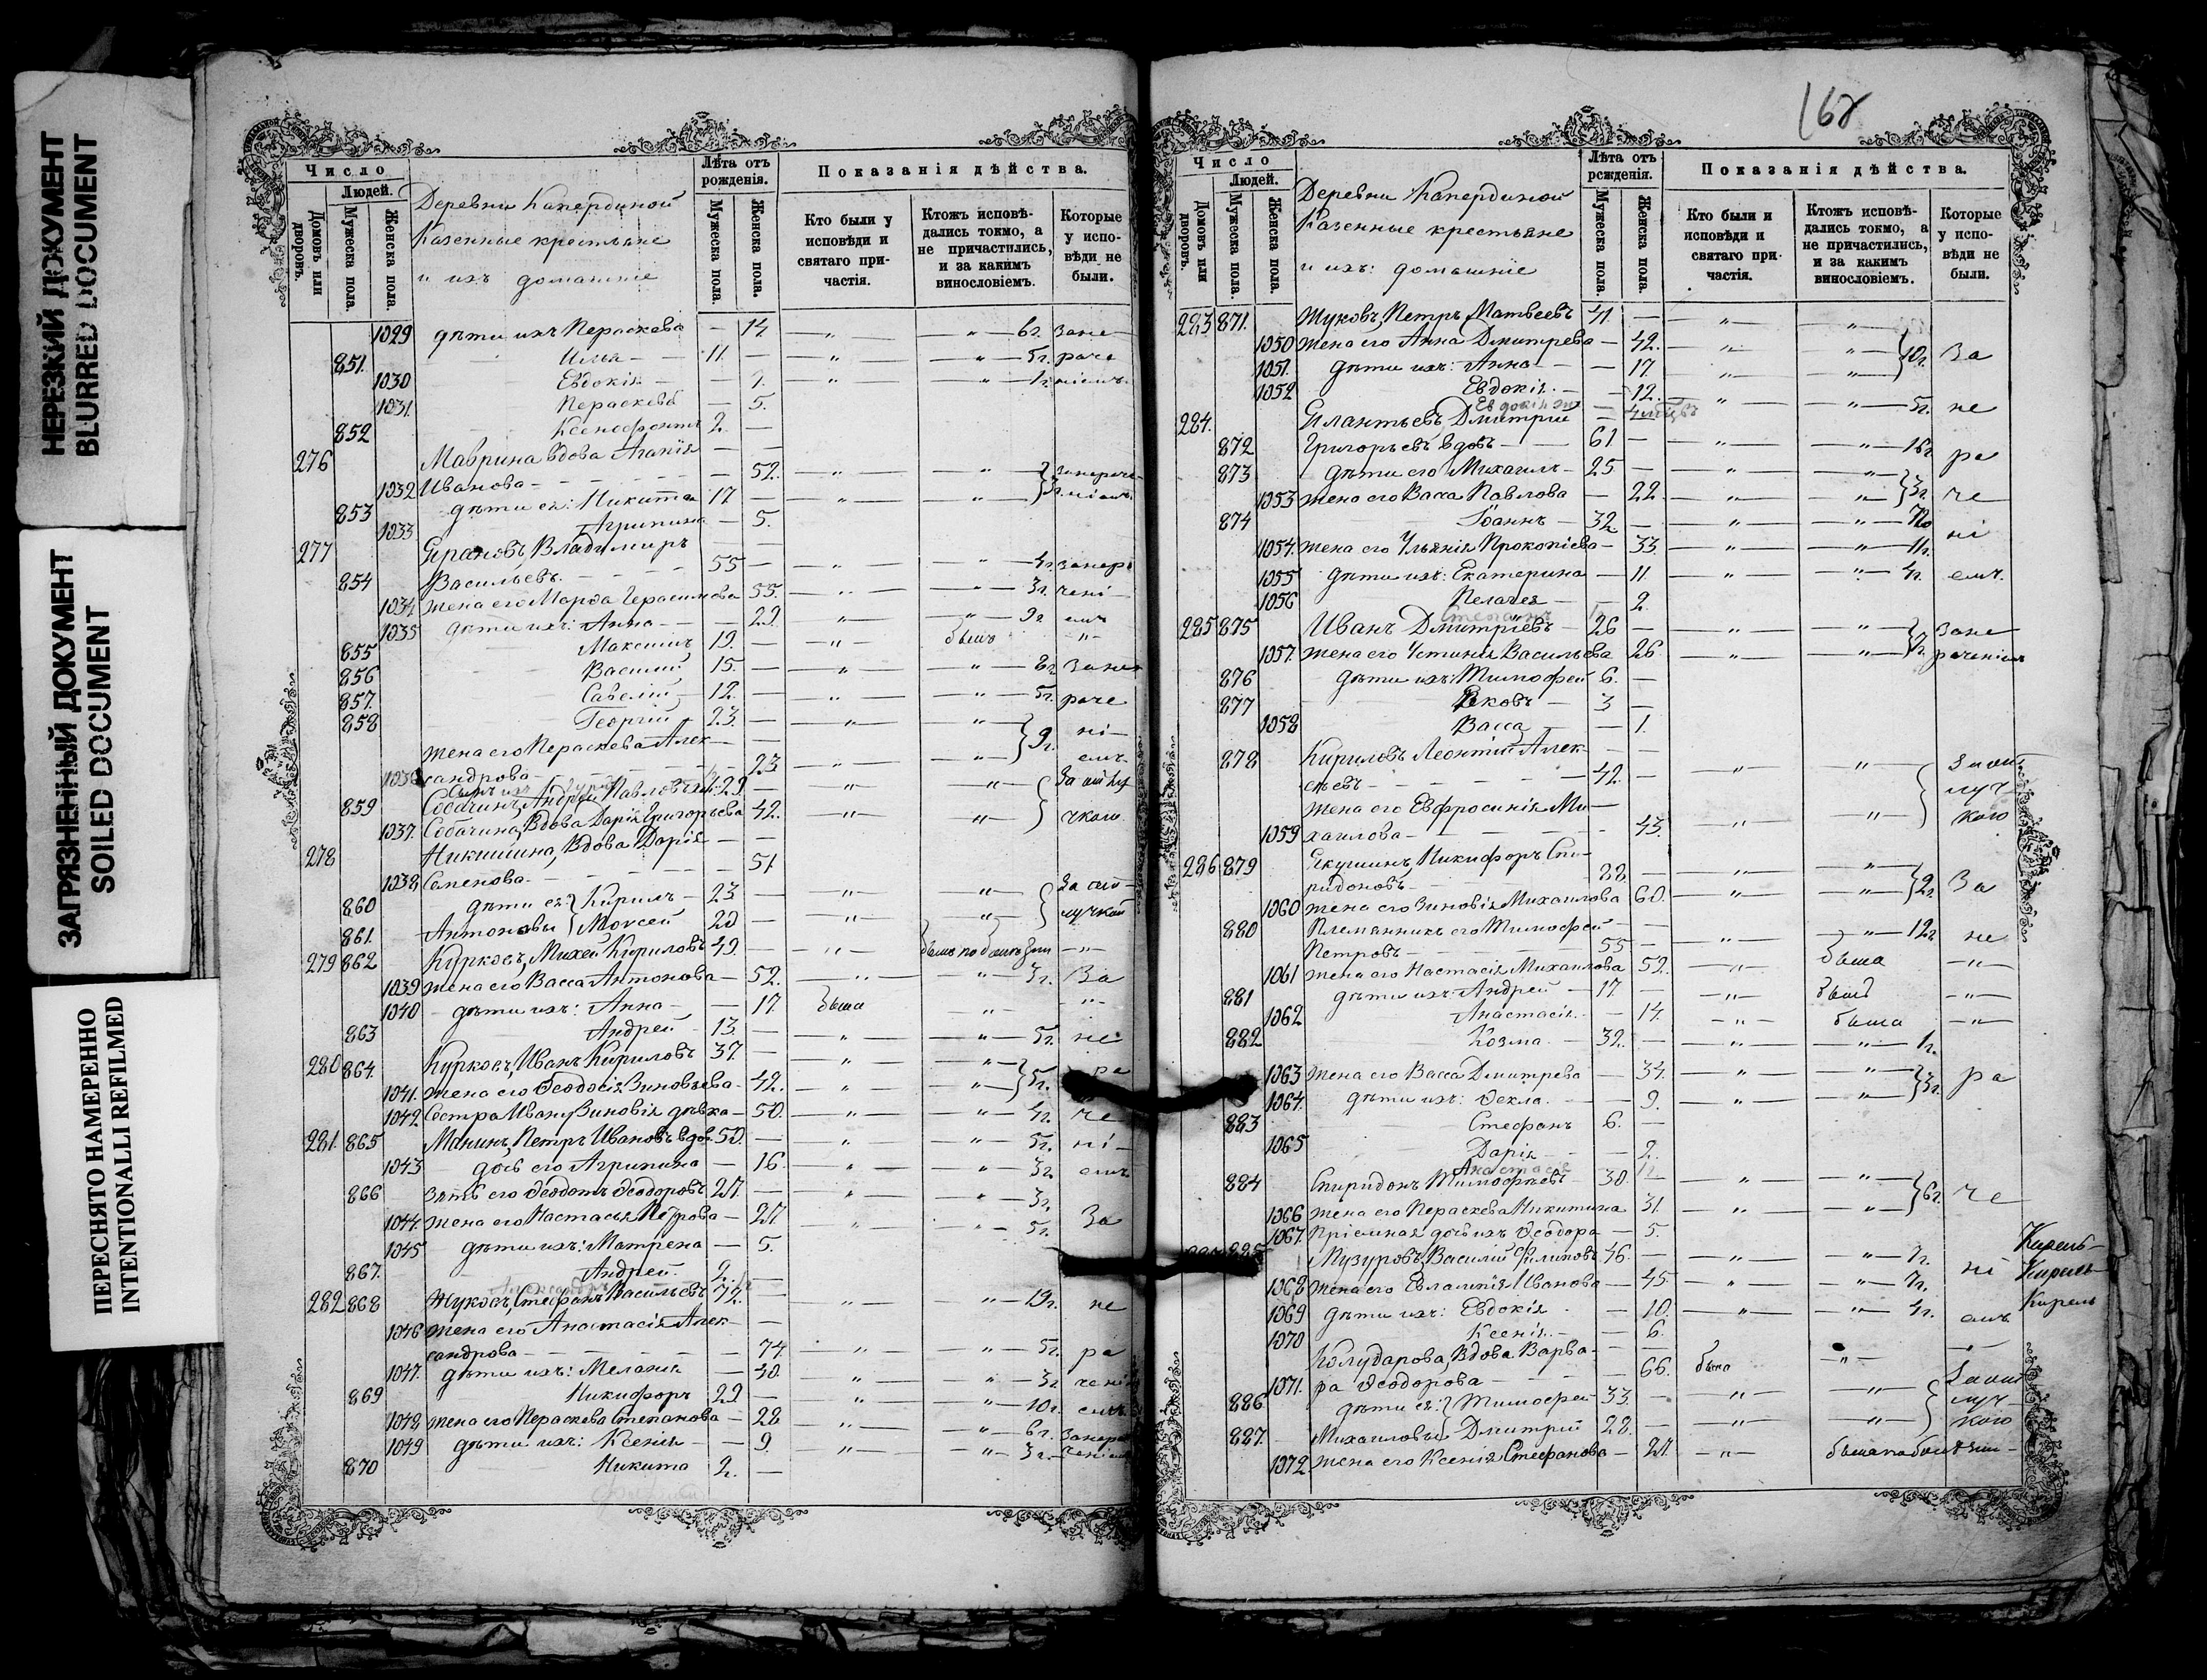 НЕРЕЗКИЙ ДОКУМЕНТ
BLURRED DOCUMENT
ЗАГРЯЗНЕННЫЙ ДОКУМЕНТ
SOILED DOCUMENT
ПЕРЕСНЯТО НАМЕРЕННО
INTENTIONALLI REFILMED
Число
Людей.
Домовъ или дворовъ.
Мужеска пола.
Женска пола.
Деревни Капердиной
Казенные крестьяне
и ихъ домашніе
Лѣта отъ рожденія.
Мужеска пола.
Женска пола.
Показанія дѣйства.
Кто были у исповѣди и святаго причастія.
Ктожъ исповѣдались токмо, а не причастились, и за какимъ винословіемъ.
Которые у исповѣди не были.
1029 дѣти ихъ Параскева — 14 — „ — „ — 6г. Зане
851. Илья — 11. — „ — „ — 5г. раче
1030 Евдокія — — 7. — „ — „ — 1г. ніемъ
1031. Параскева — 5.
852 Ксенофонтъ 2. —
276 Маврина вдова Агапія —
1032 Иванова — — 52. — „ — „
853 дѣти ея: Никита 17 — „ — „ 3г.
1033 Агрипина — 5.
277 Владимиръ —
854 Васильевъ. 55 — „ — „ — 4г. Занера
1034 жена его Марѳа Герасимова 55. — „ — „ — 3г. чені
1035 дѣти ихъ: Анна — — 29. — „ — „ — 9г. емъ
855 Максимъ 19. — „ былъ „
856 Василій 15. — „ — „ — 8г. Зане
857. Савелій 12. — „ — „ — 5г. раче
858 Георгій 23. — „ — „ ні
жена его Параскева Алек — 9г.
1036 сандрова — — 23 — „ — „ емъ
859 Собачинъ, Андрей Павловъ 29. — „ — „ За отлу
1037. Собачина, Вдова Дарія Григорьева 42. — „ — „ чкою
278 Никишина, Вдова Дарія —
1038 Семенова — — 51
860 дѣти ея: Кирилъ — 23 — „ — „ За от
861. Антоновы Моисей 20 — „ — „ лучкой
279 862 Курковъ, Михей Кириловъ 49. — „ „
1039 жена его Васса Антонова — 52. — „ — „ 3г. За
1040 дѣти ихъ: Анна — — 17. была „ „
863 Андрей — 13. — „ — „ — 5г. не
280 864. Курковъ, Иванъ Кириловъ 37 — „ — „ ра
1041. жена его Ѳеодосія Зиновьева — 42. — „ — „ 5г.
1042 Сестра Ивану Зиновія дѣвка — 50. — „ — „ — 4г. че
281. 865 Манинъ, Петръ Ивановъ вдов. 50. — „ — „ — 5г. ні
1043 дочь его Агрипина — 16. — „ — „ — 3г. емъ
866 Зять его Ѳеодотъ Ѳеодоровъ 27. — „ — „ — 3г.
1044. жена его Настасья Петрова — 27 — „ — „ — 5г. За
1045 дѣти ихъ: Матрена — 5.
867. Андрей. 2. —
Александръ
282 868 Жуковъ, Стефанъ Васильевъ 72. — „ — „ 19г. не
1046 жена его Анастасія Алек —
сандрова — — 74. — „ — „ — 5г. ра
1047. дѣти ихъ: Меланія — 40. — „ — „ — 3г. чені
869 Никифоръ 29. — „ — „ — 10г. емъ
1048 жена его Параскева Степанова — 28 — „ — „ — 6г. Занера
1049 дѣти ихъ: Ксенія — — 9. — „ — „ — 3г. ченіемъ
870 Никита 2. —
168
Число
Людей.
Домовъ или дворовъ.
Мужеска пола.
Женска пола.
Деревни Капердиной
Казенные крестьяне
и ихъ: домашніе
Лѣта отъ рожденія.
Мужеска пола.
Женска пола.
Показанія дѣйства.
Кто были и исповѣди и святаго причастія.
Ктожъ исповѣдались токмо, а не причастились, и за какимъ винословіемъ.
Которые у исповѣди не были.
283 871. Жуковъ, Петръ Матвеевъ 41. — „ — „
1050 жена его Анна Дмитрева — 42. — „ — „ 10г. За
1051. дѣти ихъ: Анна — — 17. — „ — „
1052 Евдокія. — — 12. — „ — „ — 5г. не
284. Елантьевъ, Дмитрій
872 Григорьевъ вдовъ — 61 — „ — „ — 16г. ра
873 дѣти его Михаилъ — 25 — „ — „
1053 жена его Васса Павлова — 22. — „ — „ 3г. че
874 Іоаннъ — 32 — „ — „
1054. жена его Ульянія Прокопіева — 33. — „ — „ — 11г. ні
1055 дѣти ихъ: Екатерина — 11. — „ — „ — 4г. емъ.
1056 Пелагея — — 2.
Степанъ
285 875 Иванъ Дмитріевъ — 26 — „ — „ Зане
1057. жена его Устинія Васильева 26. — „ — „ раченіемъ
876 дѣти ихъ: Тимофей 6. —
877 Яковъ — 3 —
1058 Васса — 1.
878 Кириловъ Леонтій Алек — —
сѣевъ — — 42. — „ — „ За от
жена его Евфросинія Ми — луч
1059 хаилова — — 43. — „ — „ кою
286 879 Якушинъ, Никифоръ Спи —
ридоновъ — 88 — „ — „
1060 жена его Зиновія Михаилова 60. — „ — „ 2г. За
880 Племянникъ его Тимофей —
Петровъ — 55 — „ — „ — 12г. не
1061 жена его Настасія Михаилова 52. — „ была „
881 дѣти ихъ: Андрей — 17. — „ былъ „
1062 Анастасія. — 14. — „ была „
882 Козма. — 32. — „ — „ — 1г.
1063 жена его Васса Дмитрева — 34. — „ — „ 3г. ра
1064. дѣти ихъ: Ѳекла. — — 9. — „ — „
883 Стефанъ 6. —
1065 Дарія — — 2.
Анастасія
884 Спиридонъ Тимофѣевъ — 30. — „ — „ 6г. че
1066 жена его Параскева Никитина 31. — „ — „
1067. Пріемная дочь ихъ Ѳеодора — 5.
885 Музуровъ, Василій Филиповъ 46. — „ — „
1068 жена его Евлампія Иванова — 45. — „ — „ ні
1069 дѣти ихъ: Евдокія — 10. — „ — „ — 4г. емъ
1070 Ксенія. — 6.
Колударова, Вдова Варва —
1071. ра Ѳеодорова — — 66. была — „
886 дѣти ея: Тимофей 33. — „ — „ За от
887. Михаиловы Дмитрій 28. — „ — „ лучкою
1072. жена его Ксенія Стефанова — 27. — „ была